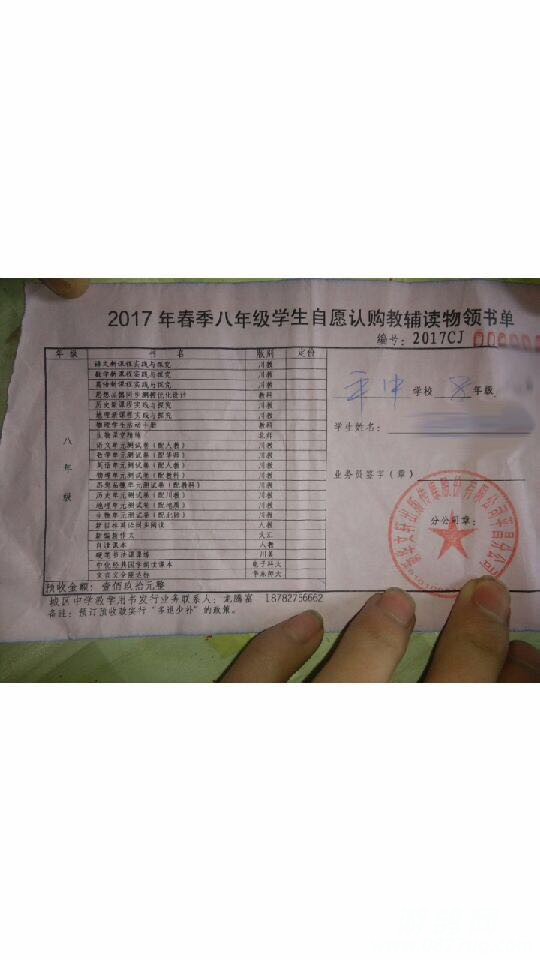 2017年春季八年级学生自愿认购教辅读物领书单
编号：2017CJ
年 级 书 名 版别 定价
八年级
语文新课程实践与探究 川教
数学新课程实践与探究 川教
英语新课程实践与探究 川教
思想品德同步测控优化设计 教科
历史新课程实践与探究 川教
地理新课程实践与探究 川教
物理学生活动手册 教科
语文单元测试卷（配人教） 川教
数学单元测试卷（配华师） 川教
英语单元测试卷（配川教） 川教
物理单元测试卷（配教科） 川教
思想品德单元测试卷（配教科） 川教
历史单元测试卷（配川教） 川教
地理单元测试卷 川教
生物单元测试卷（配北师） 川教
自读课本 人教
硬笔书法课课练 川美
中化经典国学朗读课本 电子科大
文言文全能达标 华东师大
平中 学校 8 年级
学生姓名：
业务员签字（章）
分公司章：
预收金额：壹佰玖拾元整
城区中学教学用书发行业务联系人：龙腾富 18782756662
备注：预订预收款实行“多退少补”的政策。